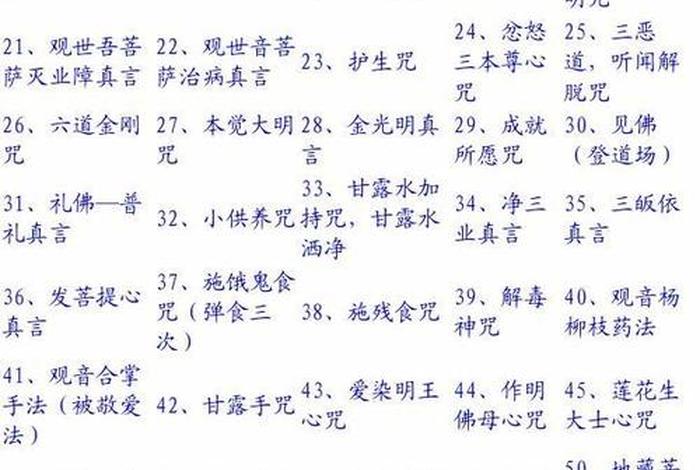 明咒
21、观世吾菩
萨灭业障真言
22、观世音菩
萨治病真言
23、护生咒
24、忿怒
三本尊心
咒
25、三恶
道，听闻解
脱咒
26、六道金刚
咒
27、本觉大明
咒
28、金光明真
言
29、成就
所愿咒
30、见佛
（登道场）
31、礼佛—普
礼真言
32、小供养咒
33、甘露水加
持咒，甘露水
洒净
34、净三
业真言
35、三皈依
真言
36、发菩提心
真言
37、施饿鬼食
咒（弹食三
次）
38、施残食咒
39、解毒
神咒
40、观音杨
柳枝药法
41、观音合掌
手法（被敬爱
法）
42、甘露手咒
43、爱染明王
心咒
44、作明
佛母心咒
45、莲花生
大士心咒
50、地藏菩